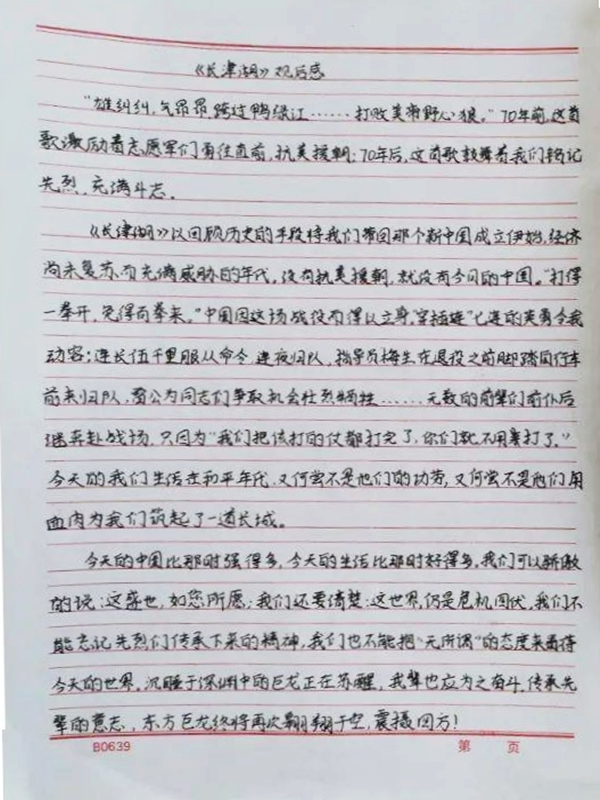 《长津湖》观后感
"雄纠纠,气昂昂,跨过鸭绿江……打败美帝野心狼。"70年前,这首
歌激励着志愿军们勇往直前,抗美援朝;70年后,这首歌鼓舞着我们铭记
先烈,充满斗志。
《长津湖》以回顾历史的手段将我们带回那个新中国成立伊始,经济
尚未复苏而充满威胁的年代,没有抗美援朝,就没有今日的中国。"打得
一拳开,免得百拳来。"中国因这场战役而得以立身,"穿插连"七连的英勇令我
动容:连长伍千里服从命令,连夜归队,指导员梅生在退役之前脚踏自行车
前来归队,雷公为同志们争取机会壮烈牺牲……无数的前辈们前仆后
继奔赴战场,只因为"我们把该打的仗都打完了,你们就不用再打了。"
今天的我们生活在和平年代,又何尝不是他们的功劳,又何尝不是他们用
血肉为我们筑起了一道长城。
今天的中国比那时强得多,今天的生活比那时好得多,我们可以骄傲
的说:这盛世,如您所愿;我们还要清楚:这世界,仍是危机四伏,我们不
能忘记先烈们传承下来的精神,我们也不能把"无所谓"的态度来看待
今天的世界,沉睡于深渊中的巨龙正在苏醒,我辈也应为之奋斗,传承先
辈的意志,东方巨龙终将再次翱翔于空,震摄四方!
B0639 第 页